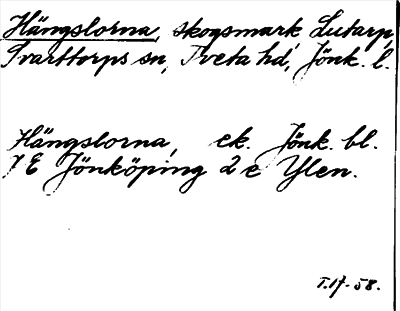 Hängslorna, skogsmark Lutarp,
Svarttorps sn, Tveta hd, Jönk. l.
Hängslorna, ek. Jönk. bl.
7 E Jönköping 2 e Ylen.
T.17-58.